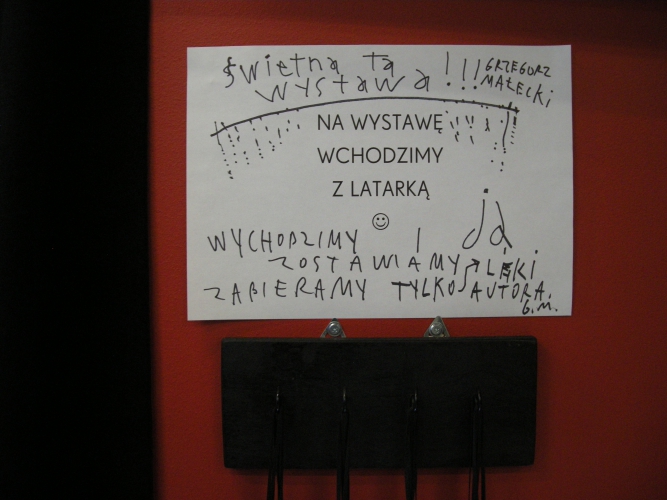 świetna ta
wystawa!!!
GRZEGORZ
MAŁECKI
NA WYSTAWĘ
WCHODZIMY
Z LATARKĄ
WYCHODZIMY I
ZOSTAWIAMY LĘKI
ZABIERAMY TYLKO AUTORA.
G.M.